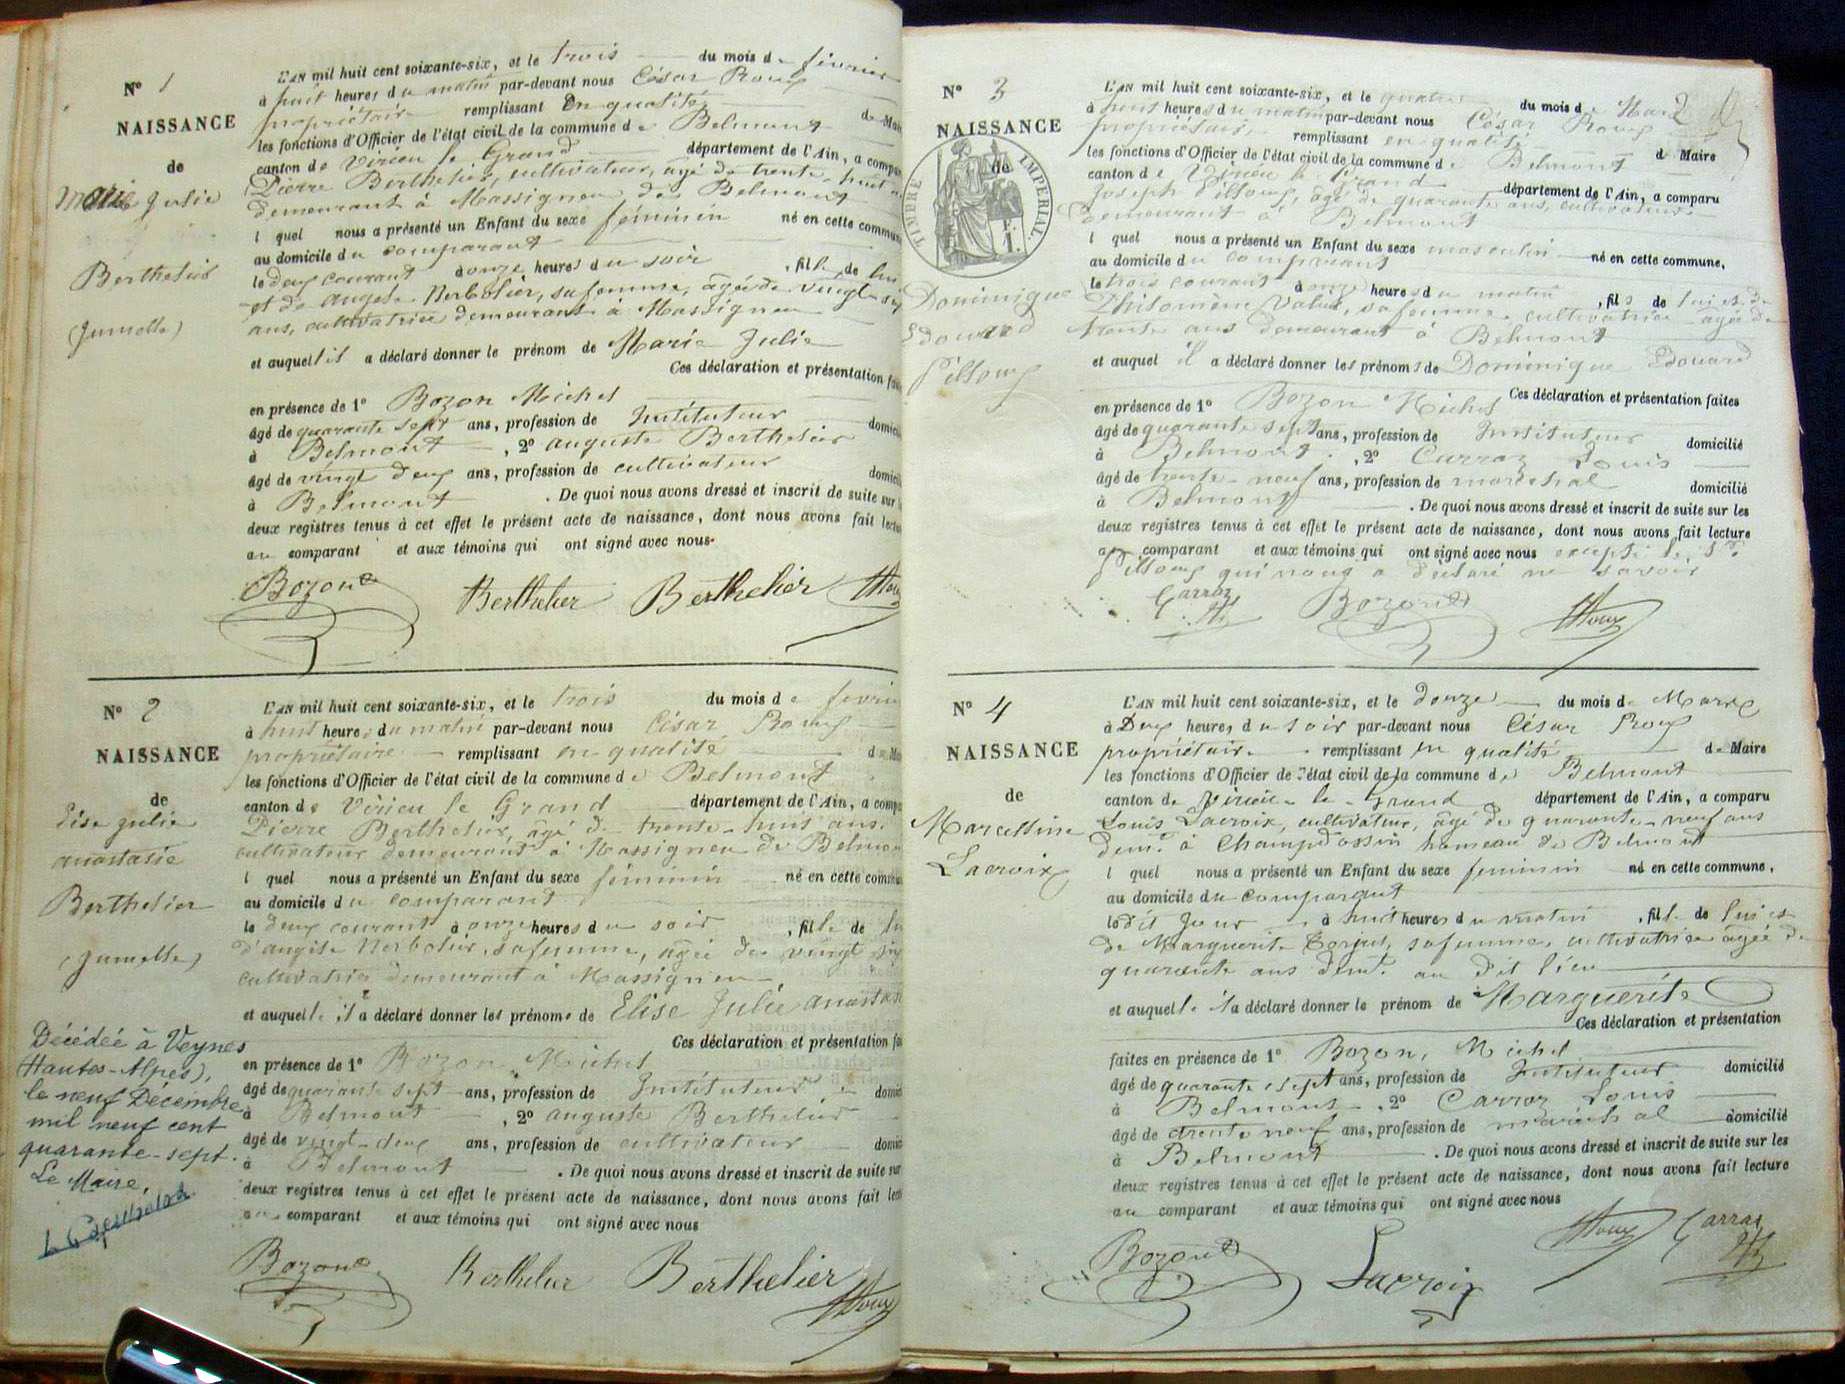 N° 1
NAISSANCE
de
Marie Julie
Berthelier
(Jumelle)
L'AN mil huit cent soixante-six, et le trois du mois de février
à huit heures du matin par-devant nous César Roux
propriétaire remplissant en qualité de Maire
les fonctions d'Officier de l'état civil de la commune de Belmont
canton de Virieu le Grand département de l'Ain, a comparu
Pierre Berthelier, cultivateur, âgé de trente-huit
demeurant à Massigneu de Belmont
lequel nous a présenté un Enfant du sexe féminin né en cette commune
au domicile du comparant
le deux courant à onze heures du soir, fille de lui
et de Nerbolier, sa femme, âgée de vingt-
ans, cultivatrice demeurant à Massigneu
et auquel il a déclaré donner le prénom de Marie Julie
Ces déclaration et présentation
en présence de 1° Bozon Michel
âgé de quarante sept ans, profession de Instituteur
à Belmont, 2° auguste Berthelier
âgé de vingt deux ans, profession de cultivateur
à Belmont. De quoi nous avons dressé et inscrit de suite sur
deux registres tenus à cet effet le présent acte de naissance, dont nous avons fait lecture
au comparant et aux témoins qui ont signé avec nous
Bozon Berthelier Berthelier Roux
N° 2
NAISSANCE
de
Elise Julie
anastasie
Berthelier
(Jumelle)
Décédée à Veynes
(Hautes-Alpes),
le neuf Décembre
mil neuf cent
quarante-sept.
Le Maire,
L'AN mil huit cent soixante-six, et le trois du mois de février
à huit heures du matin par-devant nous César Roux
propriétaire remplissant en qualité de
les fonctions d'Officier de l'état civil de la commune de Belmont
canton de Virieu le Grand département de l'Ain, a
Pierre Berthelier, âgé de trente-huit ans,
cultivateur demeurant à Massigneu de Belmont
lequel nous a présenté un Enfant du sexe féminin né en cette commune
au domicile du comparant
le deux courant à onze heures du soir, fille de
Nerbolier, sa femme, âgée de vingt
cultivatrice demeurant à Massigneu
et auquel il a déclaré donner les prénoms de Elise Julie anastasie
Ces déclaration et présentation
en présence de 1° Bozon Michel
âgé de quarante sept ans, profession de Instituteur
à Belmont, 2° auguste Berthelier
âgé de vingt-deux ans, profession de cultivateur
à Belmont. De quoi nous avons dressé et inscrit de suite sur
deux registres tenus à cet effet le présent acte de naissance, dont nous avons fait
au comparant et aux témoins qui ont signé avec nous
Bozon Berthelier Berthelier Roux
N° 3
NAISSANCE
de
TIMBRE IMPERIAL
Dominique
Edouard
L'AN mil huit cent soixante-six, et le quatre du mois de Mars
à huit heures du matin par-devant nous César Roux
propriétaire remplissant en qualité de Maire
les fonctions d'Officier de l'état civil de la commune de Belmont
canton de Virieu le Grand département de l'Ain, a comparu
Joseph âgé de quarante ans, cultivateur
demeurant à Belmont
lequel nous a présenté un Enfant du sexe masculin né en cette commune,
au domicile du comparant
le trois courant à onze heures du matin, fils de lui et de
Philomène sa femme cultivatrice âgée de
trente ans demeurant à Belmont
et auquel il a déclaré donner les prénoms de Dominique Edouard
Ces déclaration et présentation faites
en présence de 1° Bozon Michel
âgé de quarante sept ans, profession de Instituteur domicilié
à Belmont, 2° Carraz Louis
âgé de trente-neuf ans, profession de maréchal domicilié
à Belmont. De quoi nous avons dressé et inscrit de suite sur les
deux registres tenus à cet effet le présent acte de naissance, dont nous avons fait lecture
au comparant et aux témoins qui ont signé avec nous excepté le Sr
qui nous a déclaré ne savoir
Carraz Bozon Roux
N° 4
NAISSANCE
de
Marcelline
Lacroix
L'AN mil huit cent soixante-six, et le douze du mois de Mars
à Deux heures du soir par-devant nous César Roux
propriétaire remplissant en qualité de Maire
les fonctions d'Officier de l'état civil de la commune de Belmont
canton de Virieu-le-Grand département de l'Ain, a comparu
Louis Lacroix, cultivateur, âgé de quarante-neuf ans
demt à Champdossin hameau de Belmont
lequel nous a présenté un Enfant du sexe féminin né en cette commune,
au domicile du comparant
ledit jour à huit heures du matin, fille de lui et
de Marguerite sa femme, cultivatrice âgée de
quarante ans demt au dit lieu
et auquel il a déclaré donner le prénom de Marguerite
Ces déclaration et présentation
faites en présence de 1° Bozon, Michel
âgé de quarante sept ans, profession de Instituteur domicilié
à Belmont, 2° Carraz Louis
âgé de trente neuf ans, profession de maréchal domicilié
à Belmont. De quoi nous avons dressé et inscrit de suite sur les
deux registres tenus à cet effet le présent acte de naissance, dont nous avons fait lecture
au comparant et aux témoins qui ont signé avec nous
Bozon Lacroix Roux Carraz